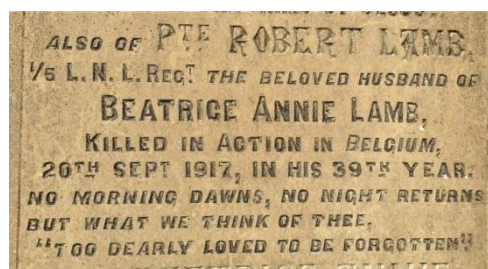 ALSO OF PTE ROBERT LAMB,
1/5 L.N.L. REGT. THE BELOVED HUSBAND OF
BEATRICE ANNIE LAMB,
KILLED IN ACTION IN BELGIUM,
20TH SEPT 1917, IN HIS 39TH YEAR.
NO MORNING DAWNS, NO NIGHT RETURNS
BUT WHAT WE THINK OF THEE.
"TOO DEARLY LOVED TO BE FORGOTTEN"